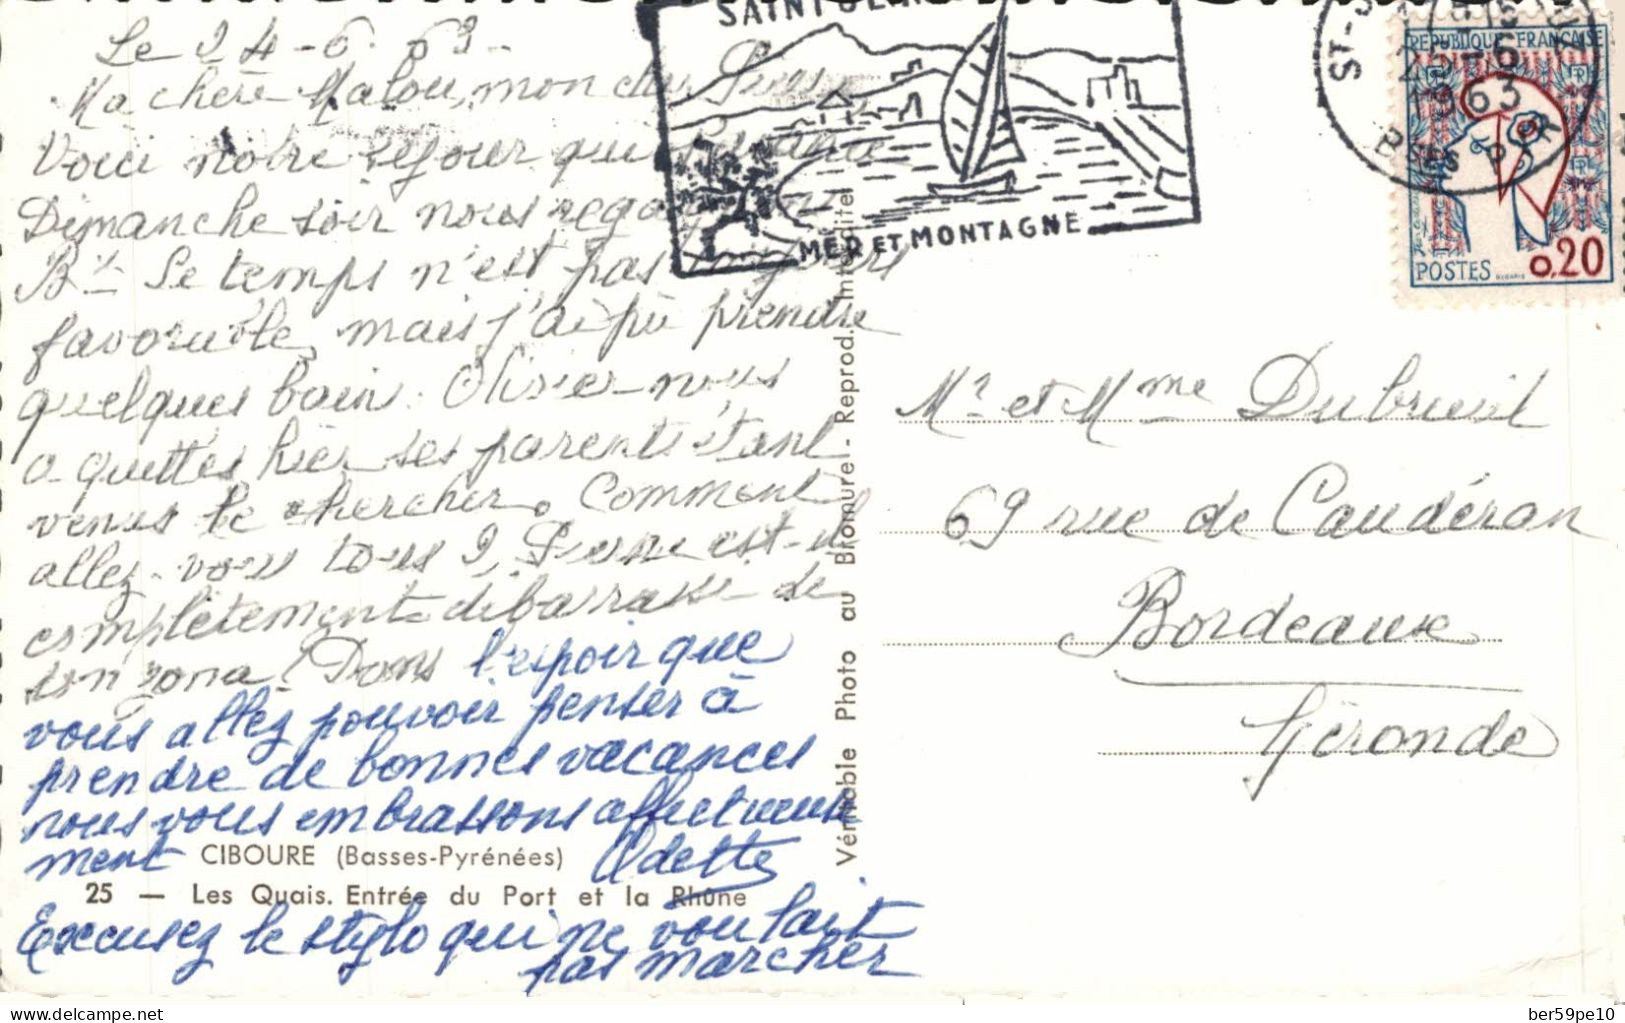 Le 24-6-63-
Ma chère Malou, mon cher
Voici notre séjour qui
Dimanche soir nous
Bx Le temps n'est pas toujours
favorable, mais j'ai pu prendre
quelques bain. Olivier nous
a quittés hier ses parents étant
venus le chercher. Comment
allez-vous tous ? Pierre est-il
complètement débarrassé de
son zona ? Dans l'espoir que
vous allez pouvoir penser à
prendre de bonnes vacances
nous vous embrassons affectueuse
ment Odette
CIBOURE (Basses-Pyrénées)
25 — Les Quais. Entrée du Port et la Rhûne
Excusez le stylo qui ne voulait
pas marcher
Véritable Photo au Bromure - Reprod. Interdite
MER ET MONTAGNE
25-6
1963
BSES PYR
REPUBLIQUE FRANÇAISE
POSTES 0,20
Mr et Mme Dubreuil
69 rue de Caudéran
Bordeaux
Gironde
ber59pe10